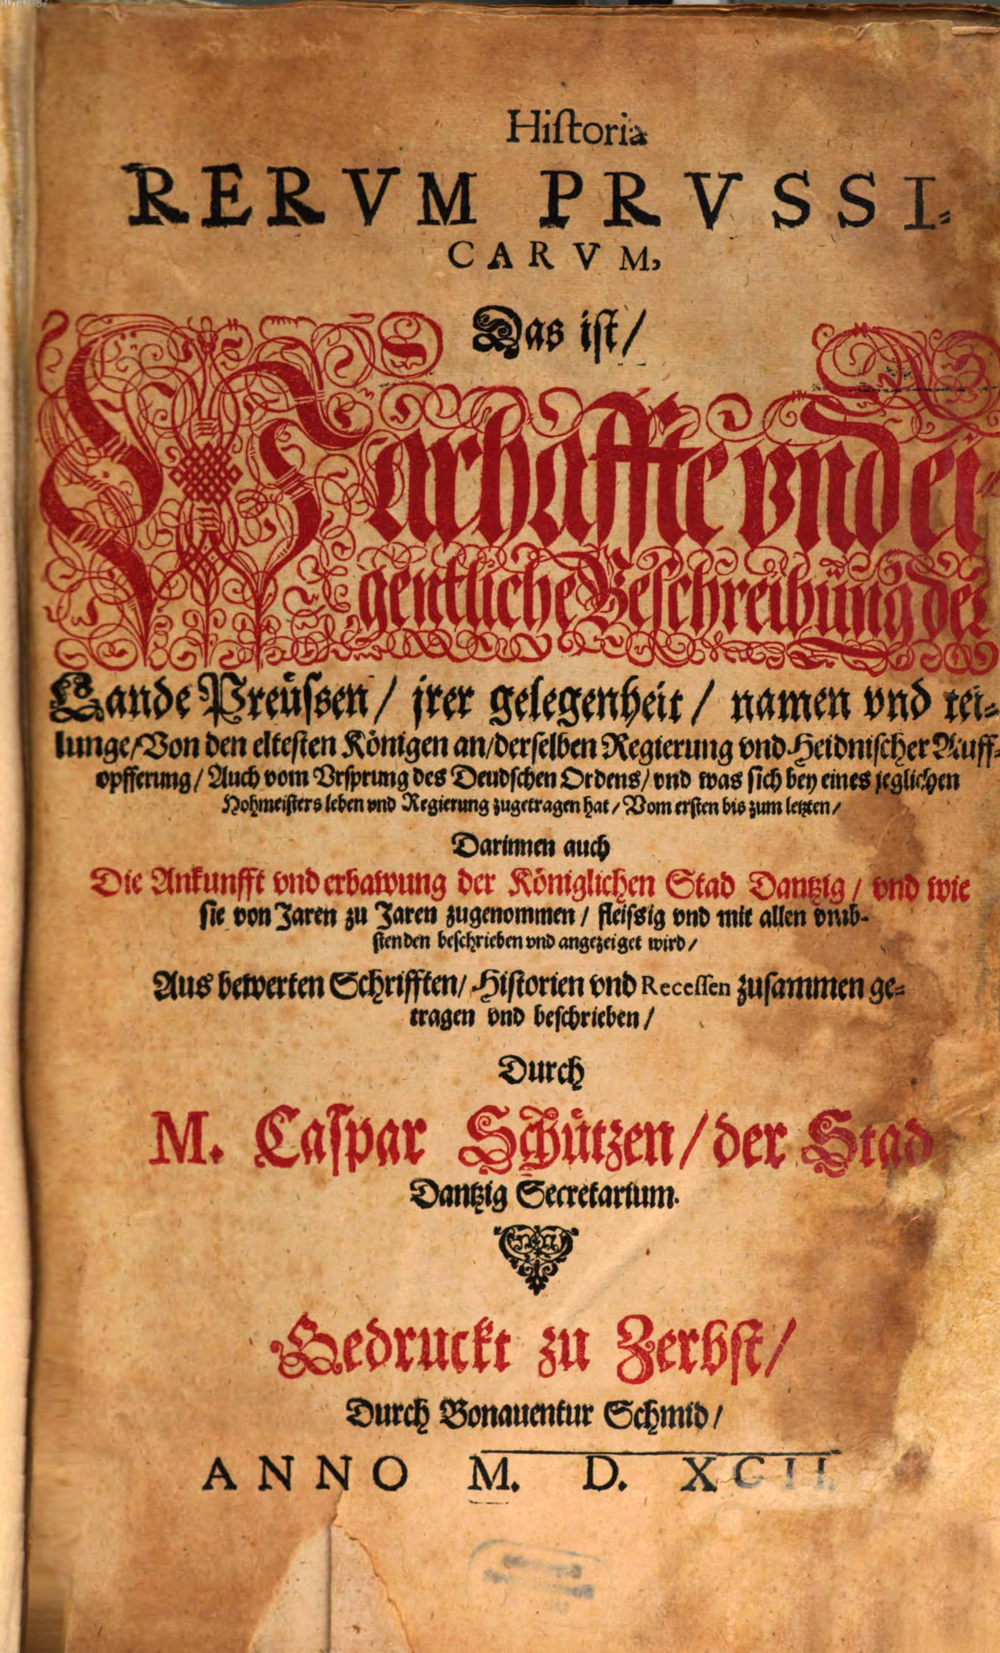 Hiſtoria
RERVM PRVSSI-
CARVM,
Das iſt/
Warhaffte vnd ei-
gentliche Beſchreibung der
Lande Preuſſen/ jrer gelegenheit/ namen vnd tei-
lunge/ Von den elteſten Königen an/ derſelben Regierung vnd Heidniſcher Auff-
opfferung/ Auch vom Vrſprung des Deudſchen Ordens/ vnd was ſich bey eines jeglichen
Hohmeiſters leben vnd Regierung zugetragen hat/ Vom erſten bis zum letzten/
Darinnen auch
Die Ankunfft vnd erbawung der Königlichen Stad Dantzig/ vnd wie
ſie von Jaren zu Jaren zugenommen/ fleiſſig vnd mit allen vmb-
ſtenden beſchrieben vnd angezeiget wird/
Aus bewerten Schrifften/ Hiſtorien vnd Receſſen zuſammen ge-
tragen vnd beſchrieben/
Durch
M. Caſpar Schützen/ der Stad
Dantzig Secretarium.
Gedruckt zu Zerbſt/
Durch Bonauentur Schmid/
ANNO M. D. XCII.